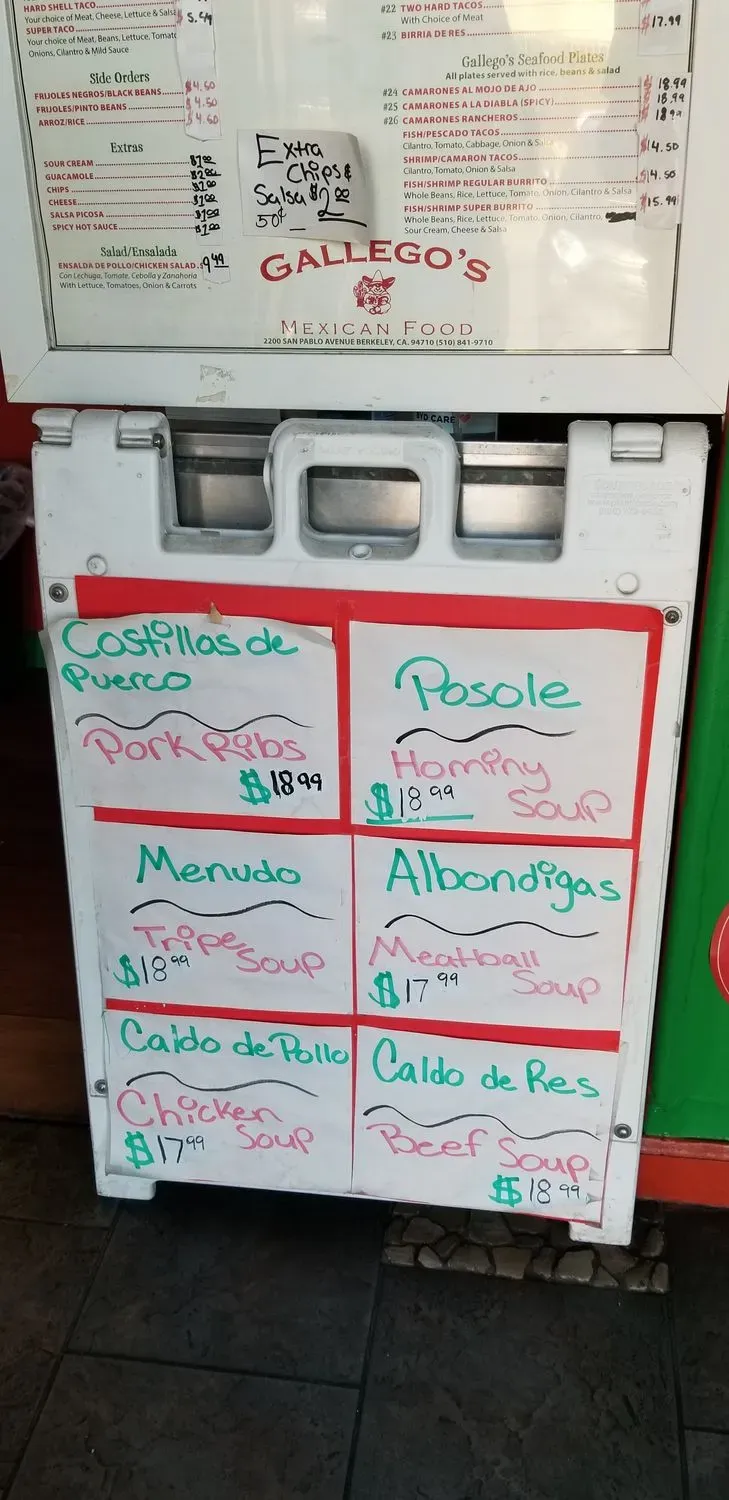 HARD SHELL TACO
Your choice of Meat, Cheese, Lettuce & Salsa
SUPER TACO
Your choice of Meat, Beans, Lettuce, Tomato
Onions, Cilantro & Mild Sauce
Side Orders
FRIJOLES NEGROS/BLACK BEANS $4.50
FRIJOLES/PINTO BEANS $4.50
ARROZ/RICE $4.50
Extras
SOUR CREAM $1.00
GUACAMOLE $2.00
CHIPS $1.00
CHEESE $1.00
SALSA PICOSA $1.00
SPICY HOT SAUCE $1.00
Salad/Ensalada
ENSALDA DE POLLO/CHICKEN SALAD .$ 9.49
Con Lechuga, Tomate, Cebolla y Zanahoria
With Lettuce, Tomatoes, Onion & Carrots
Extra
Chips &
Salsa $2.00
50¢
#22 TWO HARD TACOS
With Choice of Meat
#23 BIRRIA DE RES $17.99
Gallego's Seafood Plates
All plates served with rice, beans & salad
#24 CAMARONES AL MOJO DE AJO 18.99
#25 CAMARONES A LA DIABLA (SPICY) 18.99
#26 CAMARONES RANCHEROS 18.99
FISH/PESCADO TACOS $14.50
Cilantro, Tomato, Cabbage, Onion & Salsa
SHRIMP/CAMARON TACOS $14.50
Cilantro, Tomato, Onion & Salsa
FISH/SHRIMP REGULAR BURRITO $15.99
Whole Beans, Rice, Lettuce, Tomato, Onion, Cilantro & Salsa
FISH/SHRIMP SUPER BURRITO
Whole Beans, Rice, Lettuce, Tomato, Onion, Cilantro,
Sour Cream, Cheese & Salsa
GALLEGO'S
MEXICAN FOOD
2200 SAN PABLO AVENUE BERKELEY, CA. 94710 (510) 841-9710
Costillas de
Puerco
Pork Ribs
$18.99
Posole
Hominy
Soup
$18.99
Menudo
Tripe
Soup
$18.99
Albondigas
Meatball
Soup
$17.99
Caldo de Pollo
Chicken
Soup
$17.99
Caldo de Res
Beef Soup
$18.99